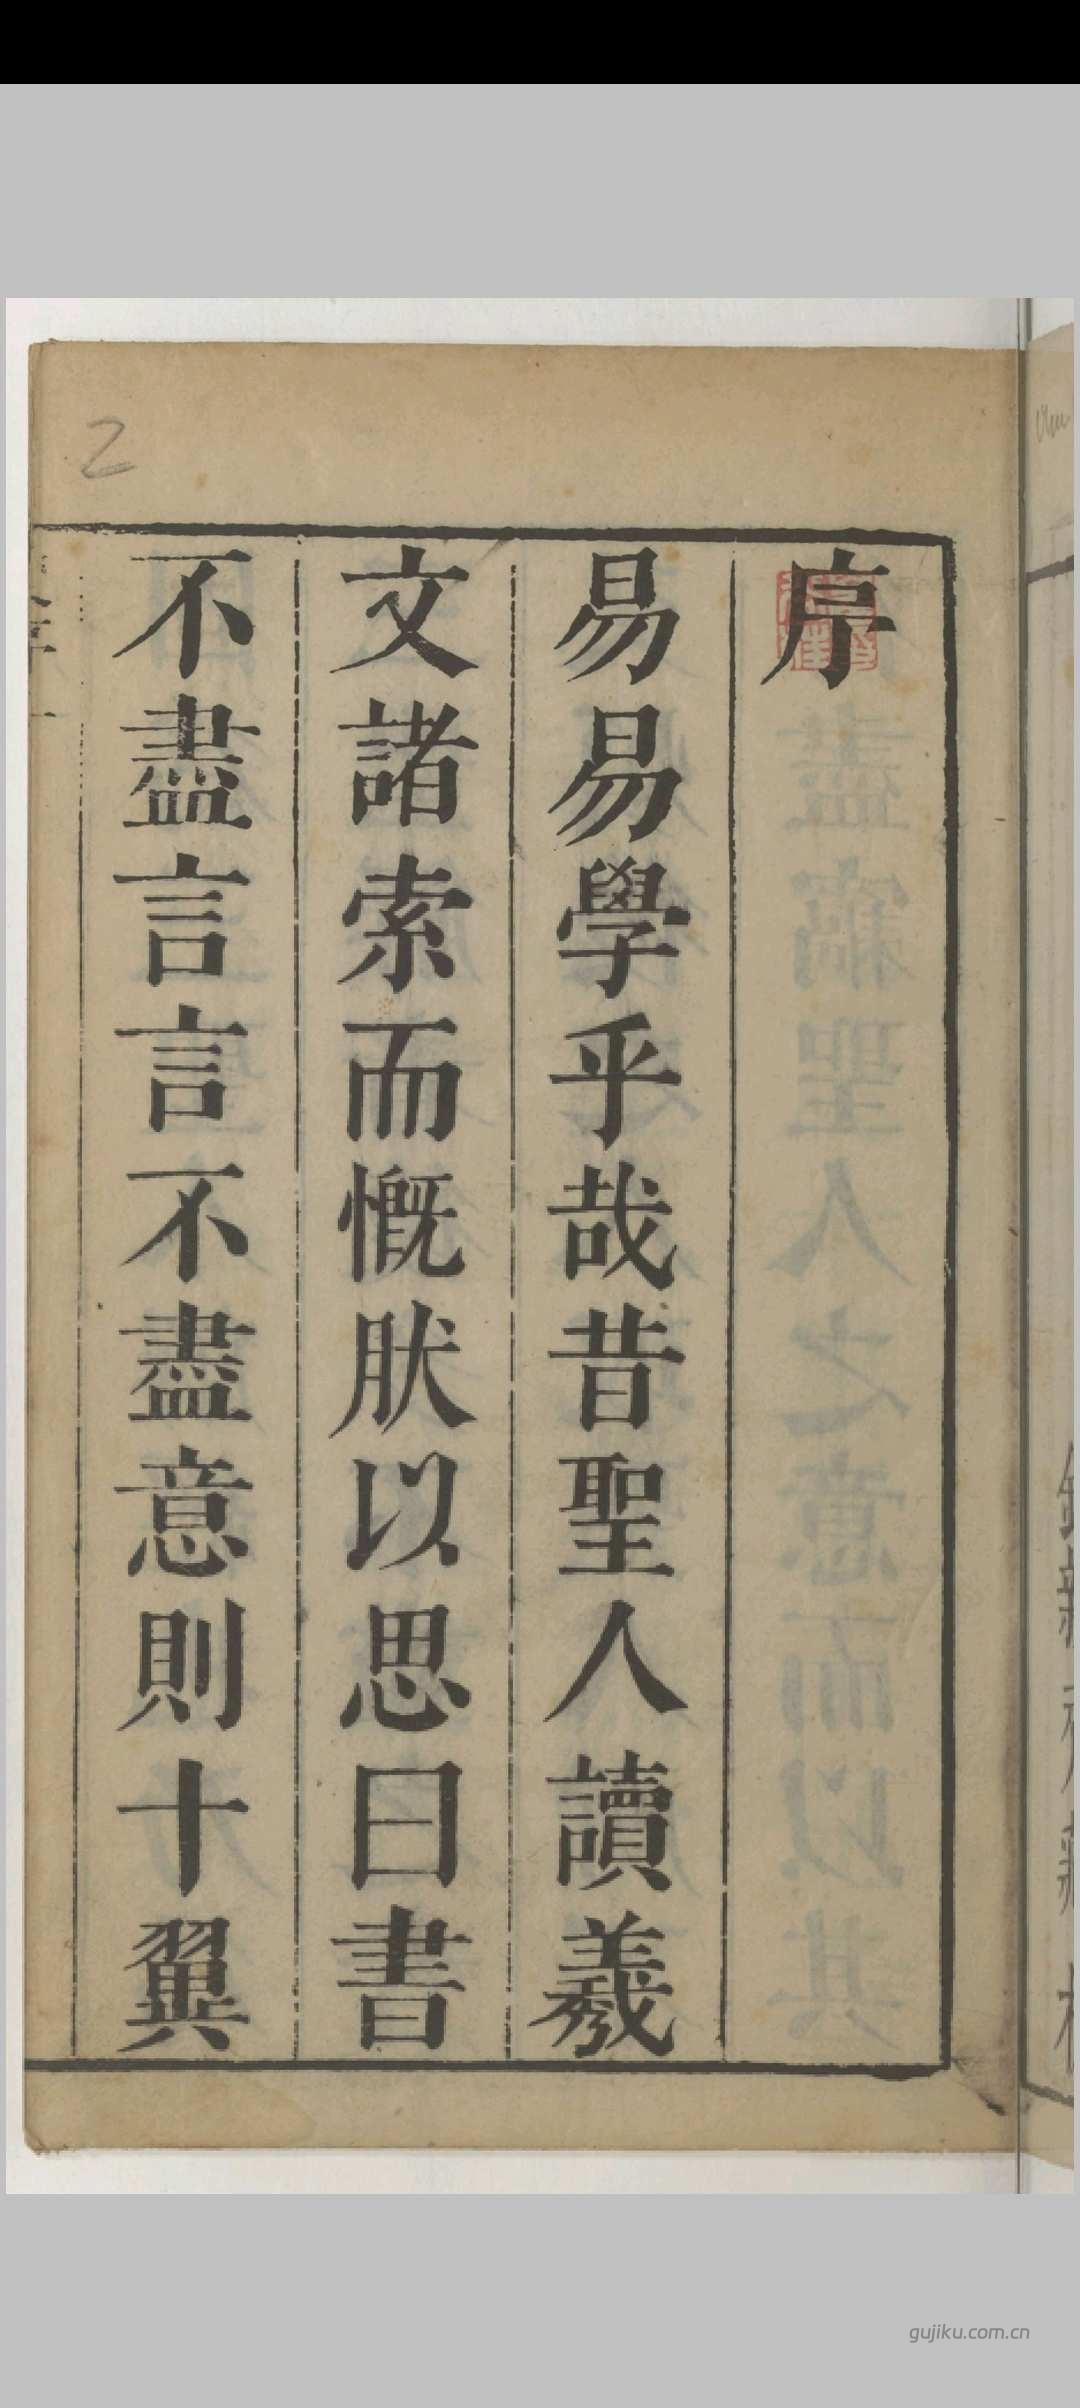 序
易易學乎哉昔聖人讀羲
文諸索而慨肰以思曰書
不盡言言不盡意則十翼
2
gujiku.com.cn